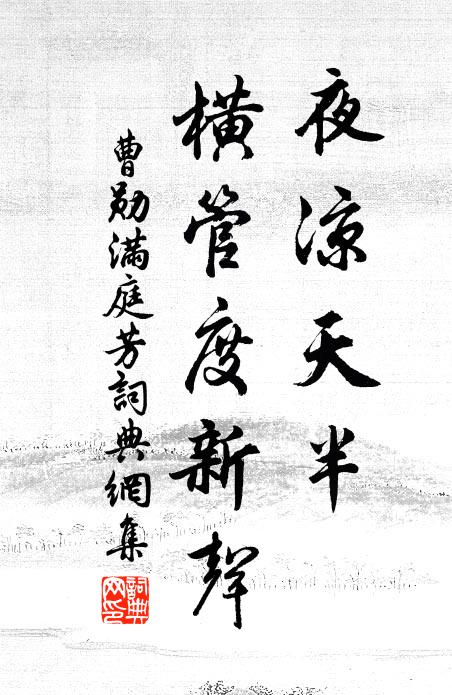 夜涼天半
橫管度新聲
曹勛滿庭芳詞典網集
詞典网印